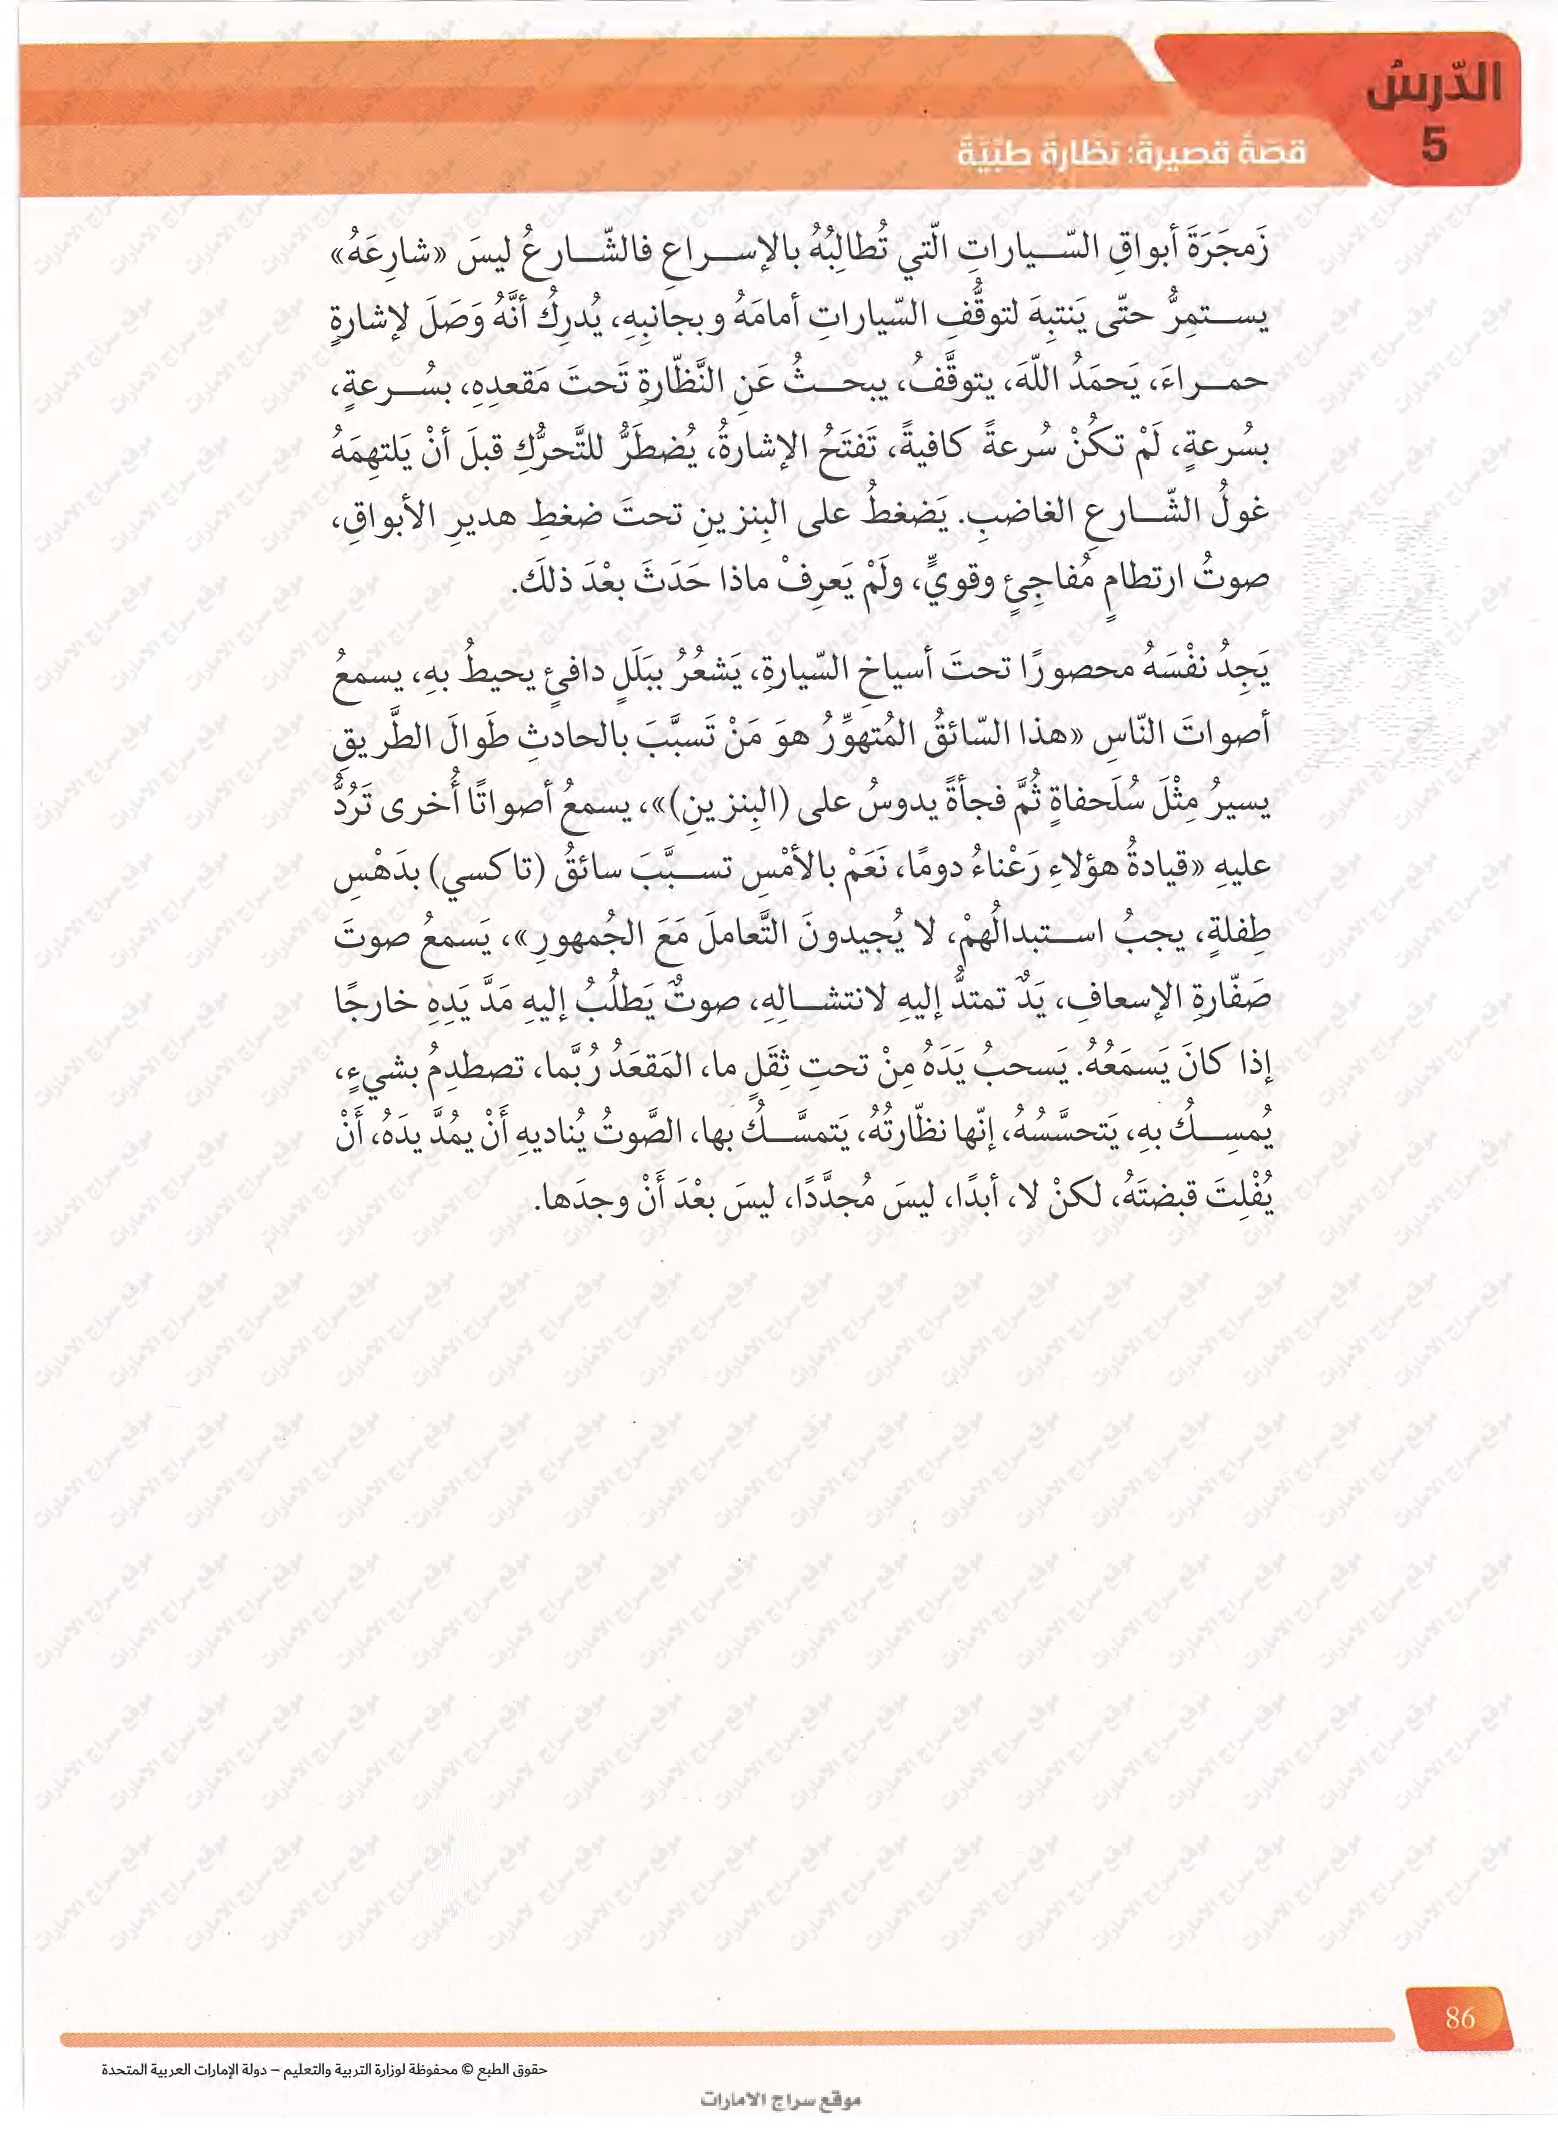 الدّرسُ
5
قصّةٌ قصيرةٌ: نظّارةٌ طبّيّةٌ
زَمجَرَةَ أبواقِ السّياراتِ الّتي تُطالِبُهُ بالإسراعِ فالشّارعُ ليسَ «شارِعَهُ»
يستمِرُّ حتّى يَنتبِهَ لتوقُّفِ السّياراتِ أمامَهُ وبجانبِهِ، يُدرِكُ أنَّهُ وَصَلَ لإشارةٍ
حمراءَ، يَحمَدُ اللّهَ، يتوقَّفُ، يبحثُ عَنِ النَّظّارةِ تَحتَ مَقعدِهِ، بسُرعةٍ،
بسُرعةٍ، لَمْ تكُنْ سُرعةً كافيةً، تَفتَحُ الإشارةُ، يُضطَرُّ للتَّحرُّكِ قبلَ أنْ يَلتهِمَهُ
غولُ الشّارعِ الغاضبِ. يَضغطُ على البِنزينِ تحتَ ضغطِ هديرِ الأبواقِ،
صوتُ ارتطامٍ مُفاجِئٍ وقويٍّ، ولَمْ يَعرِفْ ماذا حَدَثَ بعْدَ ذلكَ.
يَجِدُ نفْسَهُ محصورًا تحتَ أسياخِ السّيارةِ، يَشعُرُ ببَلَلٍ دافئٍ يحيطُ بهِ، يسمعُ
أصواتَ النّاسِ «هذا السّائقُ المُتهوِّرُ هوَ مَنْ تَسبَّبَ بالحادثِ طَوالَ الطَّريقِ
يسيرُ مِثْلَ سُلَحفاةٍ ثُمَّ فجأةً يدوسُ على (البِنزينِ)»، يسمعُ أصواتًا أُخرى تَرُدُّ
عليهِ «قيادةُ هؤلاءِ رَعْناءُ دومًا، نَعَمْ بالأمْسِ تسبَّبَ سائقُ (تاكسي) بدَهْسِ
طِفلةٍ، يجبُ استبدالُهمْ، لا يُجيدونَ التَّعاملَ مَعَ الجُمهورِ»، يَسمعُ صوتَ
صَفّارةِ الإسعافِ، يَدٌ تمتدُّ إليهِ لانتشالِهِ، صوتٌ يَطلُبُ إليهِ مَدَّ يَدِهِ خارجًا
إذا كانَ يَسمَعُهُ. يَسحبُ يَدَهُ مِنْ تحتِ ثِقَلٍ ما، المَقعَدُ رُبَّما، تصطدِمُ بشيءٍ،
يُمسِكُ بهِ، يَتحسَّسُهُ، إنّها نظّارتُهُ، يَتمسَّكُ بها، الصَّوتُ يُناديهِ أَنْ يمُدَّ يدَهُ، أَنْ
يُفْلِتَ قبضتَهُ، لكنْ لا، أبدًا، ليسَ مُجدَّدًا، ليسَ بعْدَ أَنْ وجدَها.
86
حقوق الطبع © محفوظة لوزارة التربية والتعليم – دولة الإمارات العربية المتحدة
موقع سراج الامارات